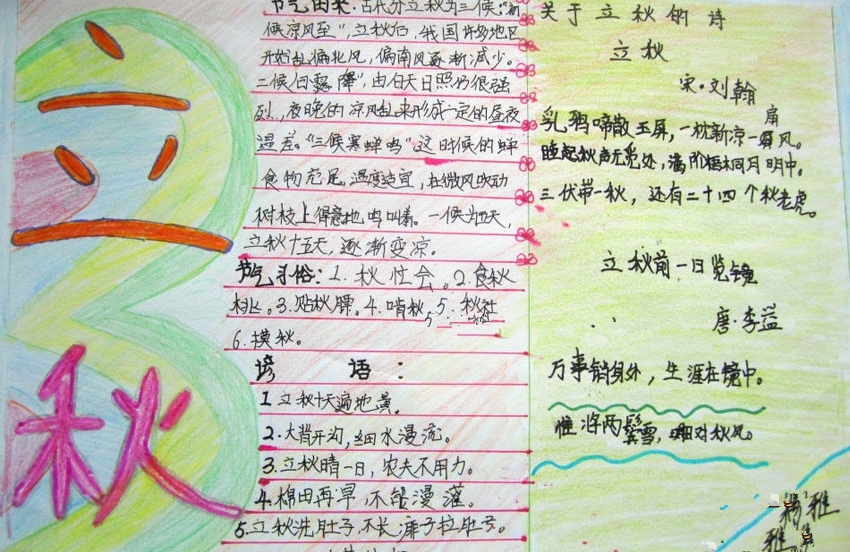 立
秋
节气由来:古代分立秋为三候:"初
候凉风至",立秋后,我国许多地区
开始刮偏北风,偏南风逐渐减少。
二候白露降",由白天日照仍很强
烈,夜晚的凉风刮来形成一定的昼夜
温差。"三候寒蝉鸣"这时候的蝉
食物充足,温度适宜,在微风吹动
树枝上得意地鸣叫着。一候为五天,
立秋十五天,逐渐变凉。
节气习俗:1.秋忙会。2.食秋
桃。3.贴秋膘。4.啃秋 5.秋社
6.摸秋。
谚语:
1立秋十天遍地黄。
2.大背开沟,细水漫流。
3.立秋晴一日,农夫不用力。
4.棉田再旱,不能漫灌。
5.立秋洗肚子,不长痱子拉肚子。
关于立秋的诗
立秋
宋·刘翰
乳鸦啼散玉屏,一枕新凉一扇风。
睡起秋声无觅处,满阶梧桐月明中。
三伏带一秋,还有二十四个秋老虎。
立秋前一日览镜
唐·李益
万事销身外,生涯在镜中。
惟将两鬓雪,相对秋风。